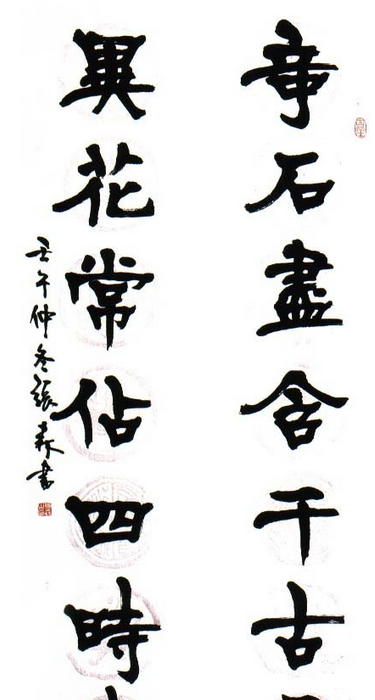 竒石盡含千古
異花常佔四時
壬午仲冬張森書